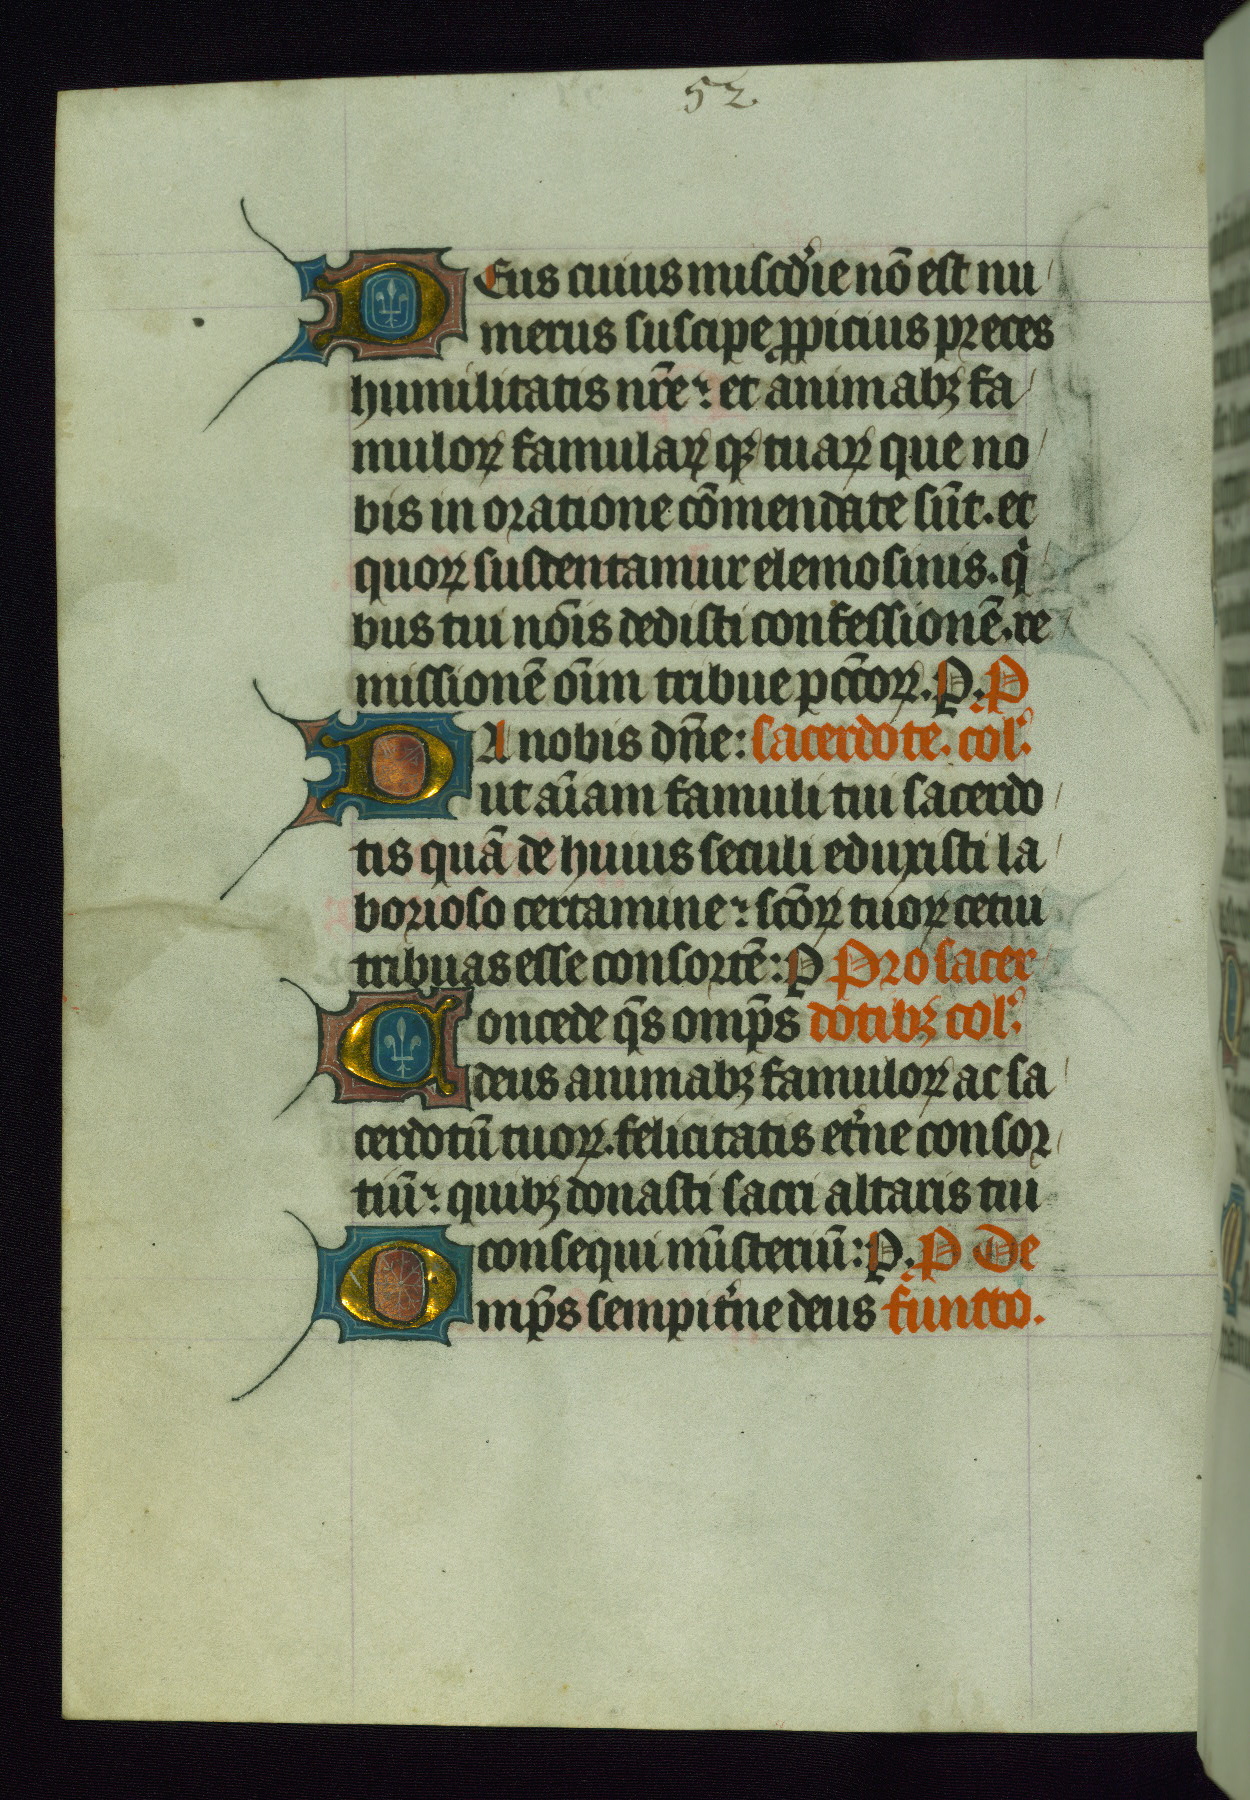 52.
Deus cuius misc̄d'ie nō est nu
merus suscipe ꝓpicius preces
humilitatis nr̄e: et animabꝫ fa
muloꝝ famulaꝝ qꝫ tuaꝝ que no
bis in oratione cōmendate sūt. et
quoꝝ sustentamur elemosinis. qͥ
bus tui nōis dedisti confessionē. re
missionē oīm tribue pctōꝝ. P. P
DA nobis dn̄e: sacerdote. col'.
ut aīam famuli tui sacerdo
tis quā de huius seculi eduxisti la
borioso certamine: scōꝝ tuoꝝ cetui
tribuas esse consortē: P Pro sacer
Concede qs̄ omp̄s dotibꝫ col'.
deus animabꝫ famuloꝝ ac sa
cerdotū tuoꝝ. felicitatis et'ne consor
tiū: quibꝫ donasti sacri altaris tui
consequi mīsteriū: P. P De
Omp̄s sempit'ne deus functo.